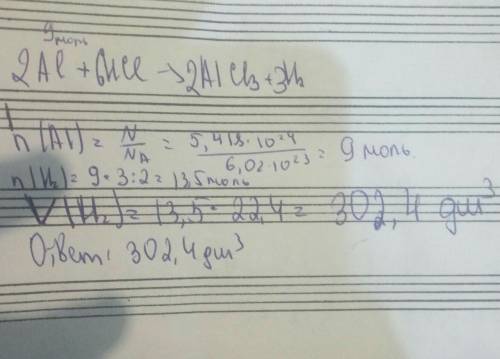 9 моль
2Al + 6HCl → 2AlCl3 + 3H2
n(Al) = N/NA = 5,418·10^24/6,02·10^23 = 9 моль
n(H2) = 9·3:2 = 13,5 моль
V(H2) = 13,5·22,4 = 302,4 дм³
Ответ: 302,4 дм³